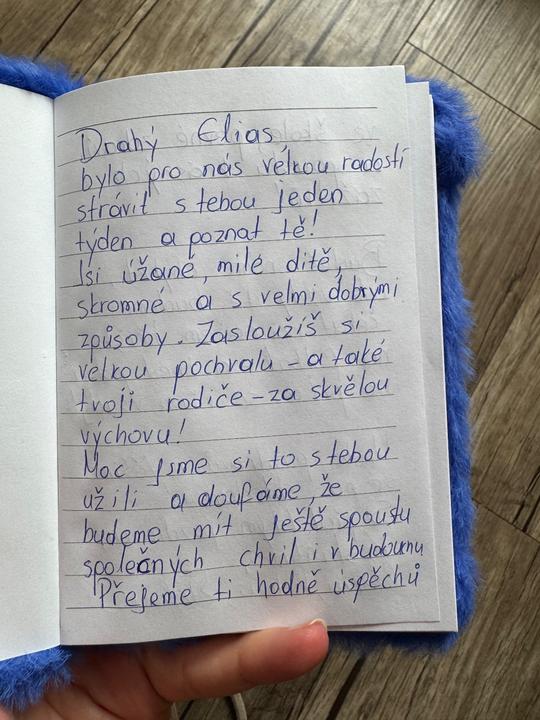 Drahý Elias
bylo pro nás velkou radostí
strávit s tebou jeden
týden a poznat tě!
Jsi úžané, milé dítě,
skromné a s velmi dobrými
způsoby. Zasloužíš si
velkou pochvalu - a také
tvoji rodiče - za skvělou
výchovu!
Moc jsme si to s tebou
užili a doufáme, že
budeme mít ještě spoustu
společných chvil i v budoucnu
Přejeme ti hodně úspěchů